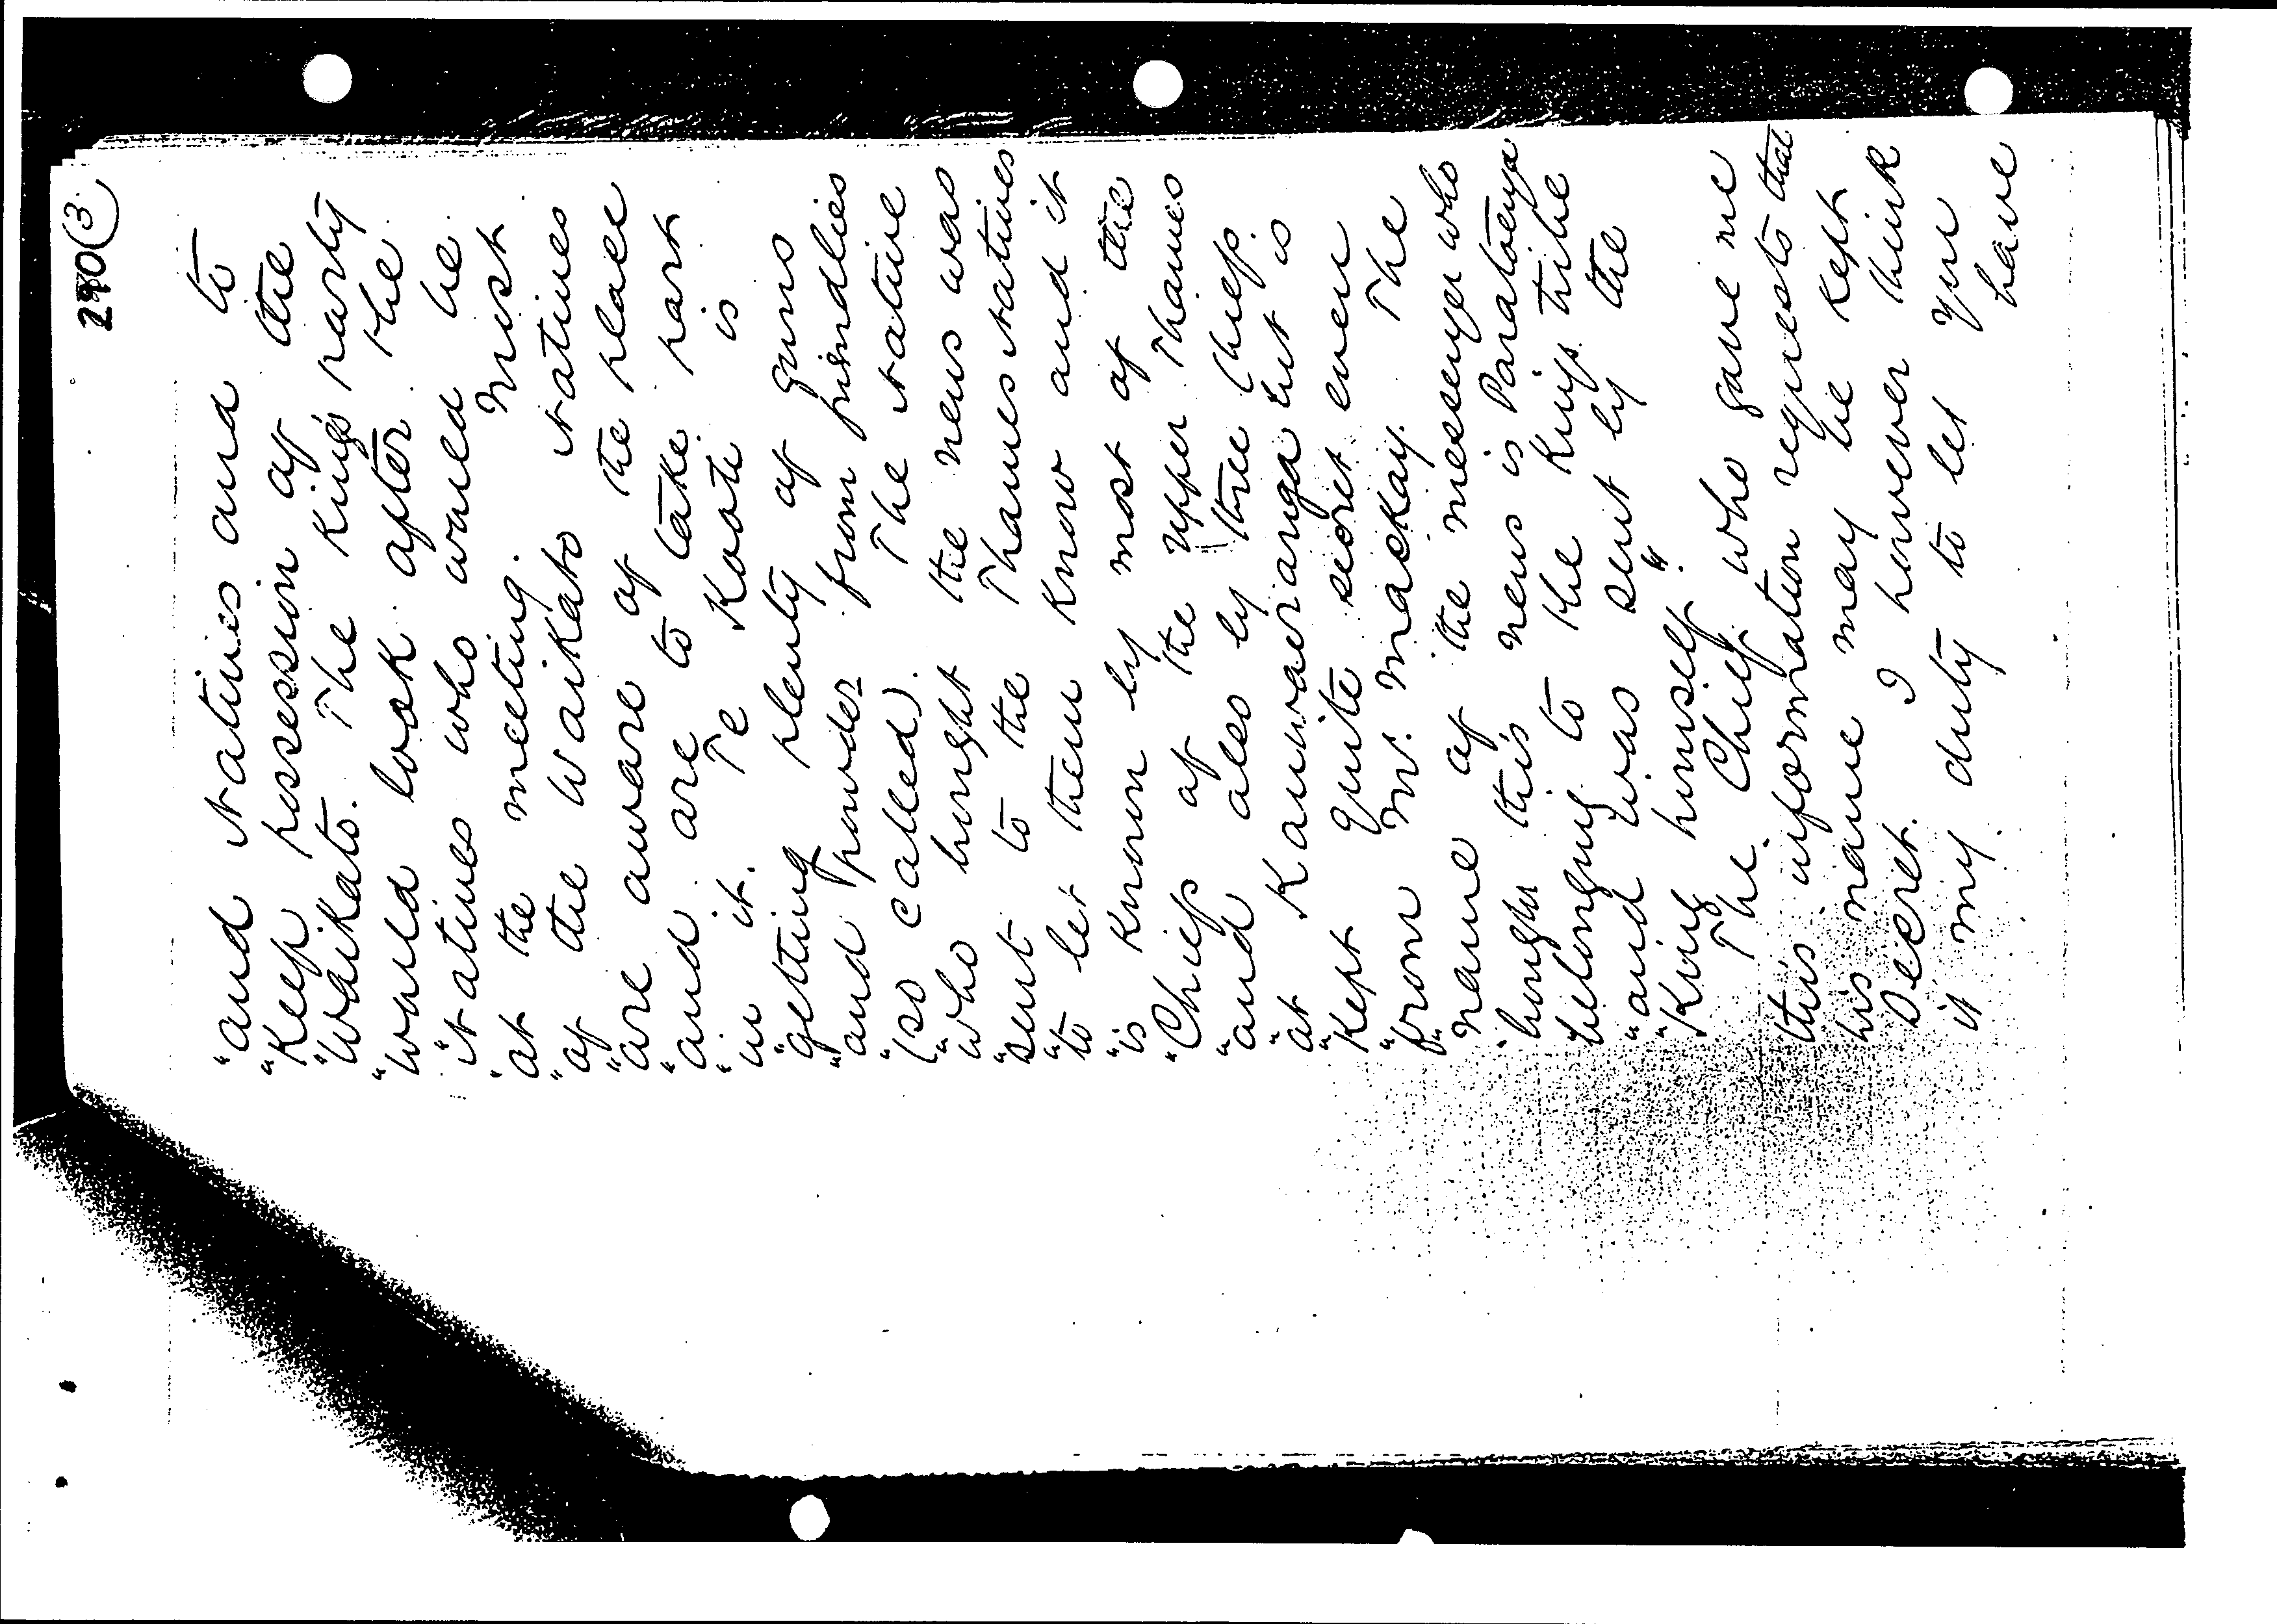 290 (3)
"and Natives and to
"Keep possession of the
"Waikato. The King's party
"would look after the
"Natives who would be
"at the meeting. Most
"of the Waikato Natives
"are aware of the place
"and are to take part
"in it. Te Kooti is
"getting plenty of guns
"and powder from friendlies
"(so called). The Native
"who brought the news was
"sent to the Thames Natives
"to let them know and it
"is known by most of the
"Chiefs of the upper Thames
"and also by three Chiefs
"at Kauwaeranga but is
"Kept quite secret even
"from Mr. Mackay. The
"name of the messenger who
"brought this news is Paratoenga
"belonging to the Kings tribe
"and was sent by the
"King himself."
The Chief who gave me
this information requests that
his name may be kept
secret. I however think
it my duty to let you
have